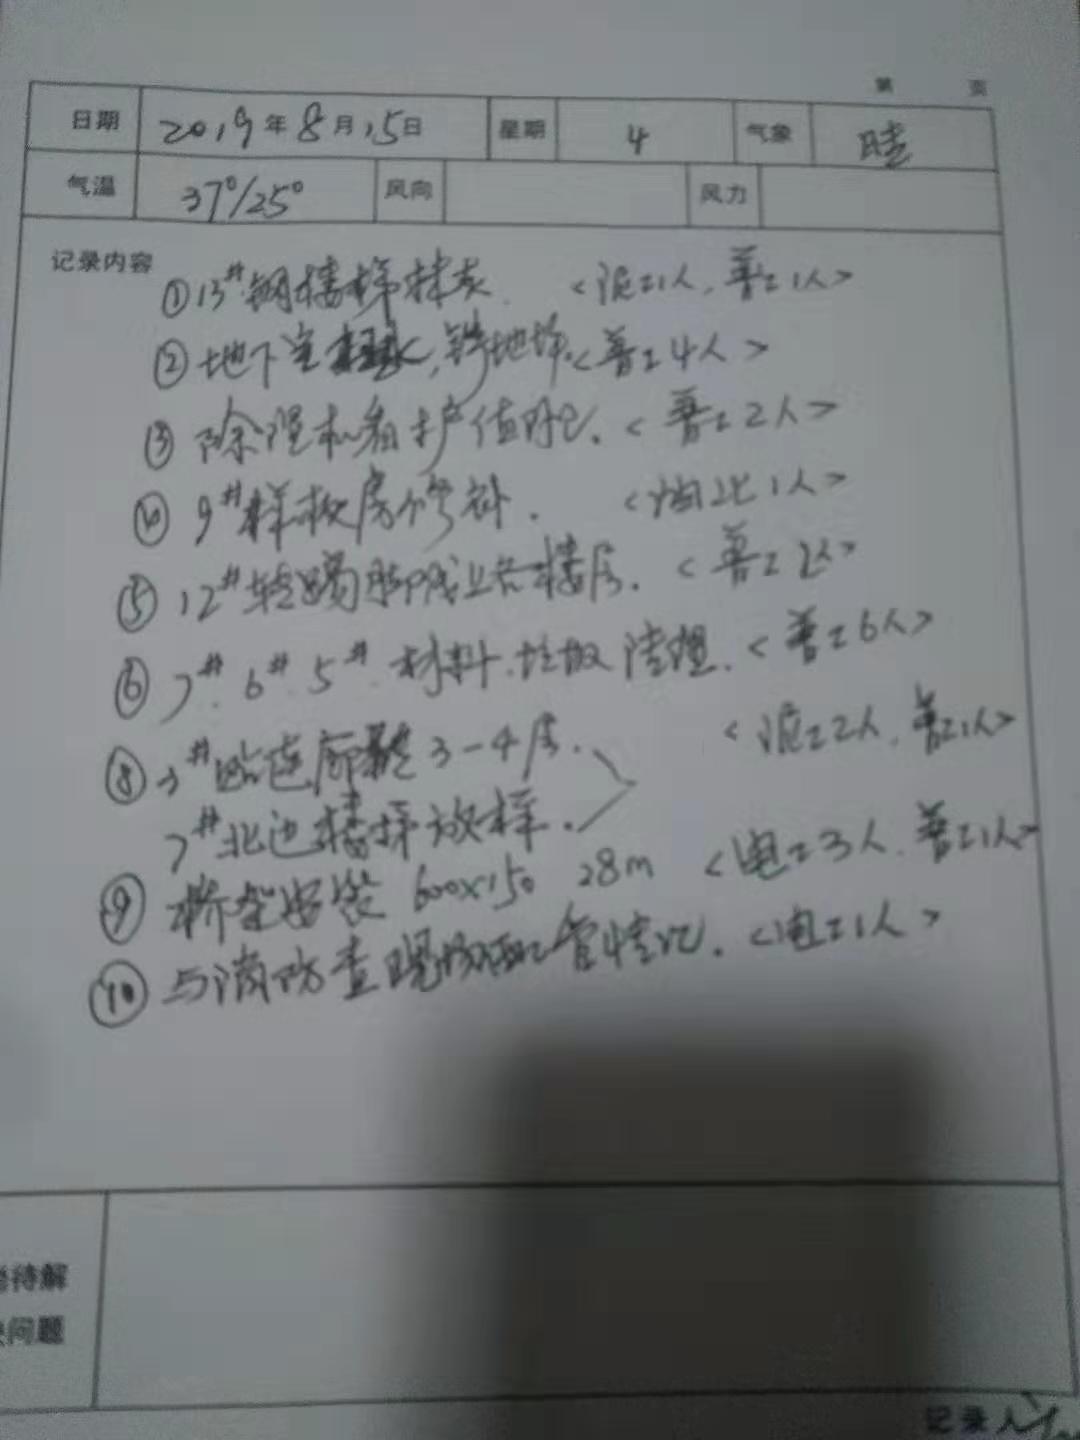 第 页
日期 2019年8月15日 星期 4 气象 晴
气温 37°/25° 风向 风力
记录内容
①13#钢楼梯抹灰. <泥工1人,普工1人>
②地下室,铲地坪.<普工4人>
③除湿机看护值班.<普工2人>
④9#样板房修补. <1人>
⑤12#楼层.<普工2人>
⑥7#.6#.5#.材料.垃圾清理.<普工6人>
⑧3#连廊3-4层. <泥工2人,普工1人>
7#北边楼梯放样.
⑨桥架安装 600×150 28m <电工3人.普工1人>
⑩与消防查现场配管情况.<电工1人>
待解
问题
记录人